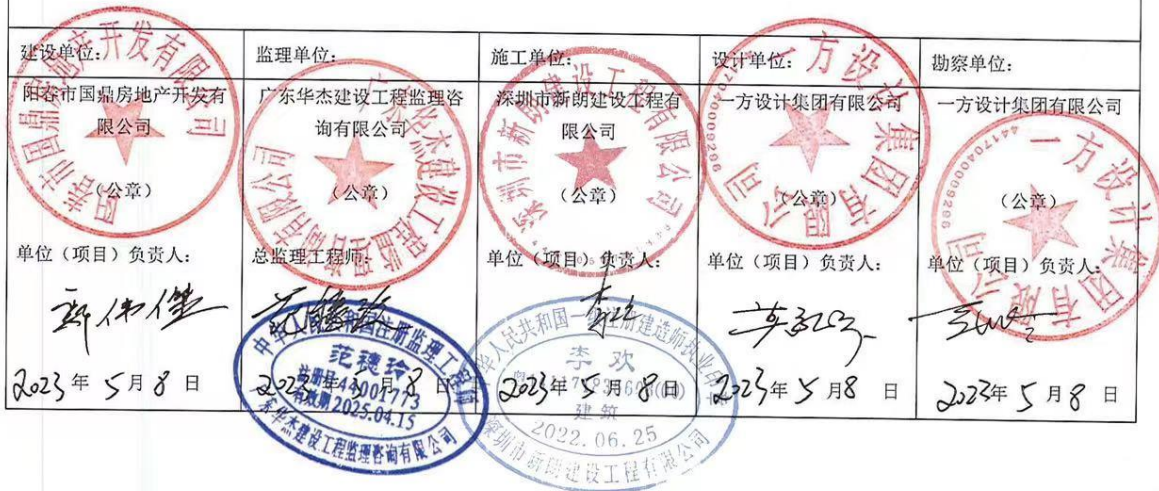 建设单位:
监理单位:
施工单位:
设计单位:
勘察单位:
阳春市国鼎房地产开发有
限公司
广东华杰建设工程监理咨
询有限公司
深圳市新朗建设工程有
限公司
一方设计集团有限公司
一方设计集团有限公司
(公章)
(公章)
(公章)
(公章)
(公章)
单位(项目)负责人:
总监理工程师:
单位(项目)负责人:
单位(项目)负责人:
单位(项目)负责人:
2023年 5月 8 日
2023年 5月 8 日
2023年 5月 8 日
2023年 5月8 日
2023年 5月 8 日
阳春市国鼎房地产开发有限公司
广东华杰建设工程监理咨询有限公司
深圳市新朗建设工程有限公司
一方设计集团有限公司
4417040009296
一方设计集团有限公司
4417040009296
中华人民共和国注册监理工程师
范穗玲
注册号44001773
有效期2025.04.15
广东华杰建设工程监理咨询有限公司
李欢
建筑
2022.06.25
深圳市新朗建设工程有限公司